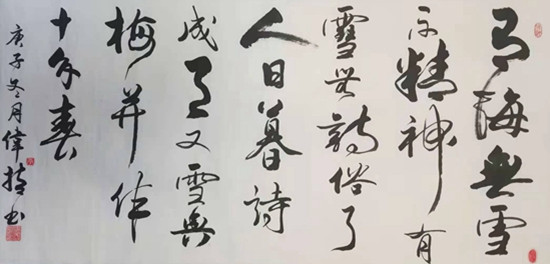 有梅無雪
不精神有
雪無詩俗了
人日暮詩
成天又雪與
梅并作
十分春
庚子冬月偉书